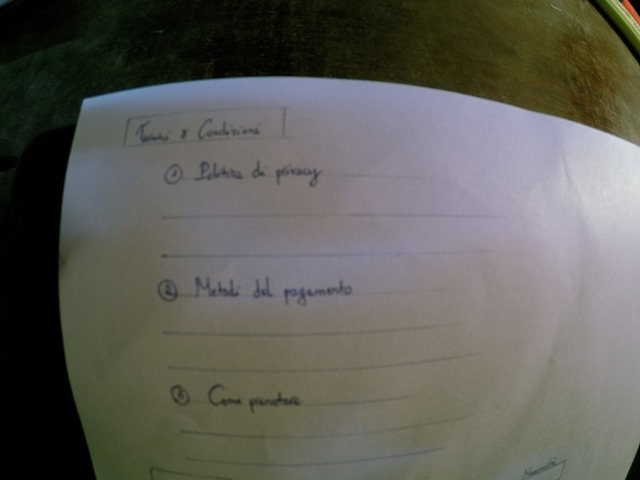 Termini & Condizioni
① Politica di privacy
② Metodi del pagamento
③ Come prenotare